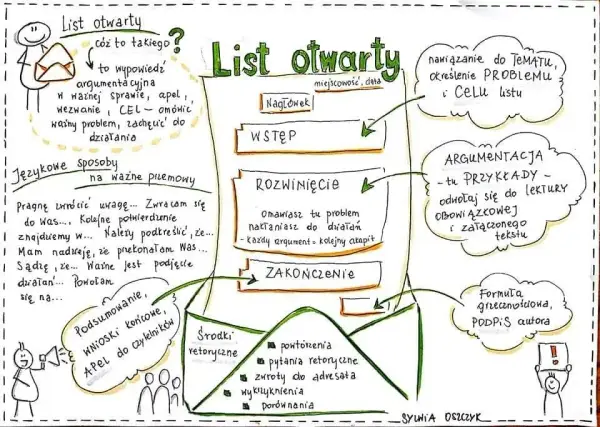 List otwarty
cóż to takiego?
to wypowiedź
argumentacyjna
w ważnej sprawie, apel,
wezwanie, CEL - omówić
ważny problem, zachęcić do
działania
Językowe sposoby
na ważne przemowy
Pragnę zwrócić uwagę... Zwracam się
do Was... Kolejne potwierdzenie
znajdziemy w... Należy podkreślić, że...
Mam nadzieję, że przekonałam Was...
Sądzę, że... Ważne jest podjęcie
działań... Powołam
się na...
Podsumowanie,
wnioski końcowe,
APEL do czytelników
List otwarty
miejscowość, data
Nagłówek
WSTĘP
ROZWINIĘCIE
Omawiasz tu problem
nakłaniasz do działań
- każdy argument = kolejny akapit
ZAKOŃCZENIE
Środki
retoryczne
powtórzenia
pytania retoryczne
zwroty do adresata
wykrzyknienia
porównania
nawiązanie do TEMATU,
określenie PROBLEMU
i CELU listu
ARGUMENTACJA
- tu PRZYKŁADY -
odwołaj się do LEKTURY
OBOWIĄZKOWEJ
i załączonego
tekstu
Formuła
grzecznościowa,
PODPIS autora
!
SYLWIA OSZCZYK